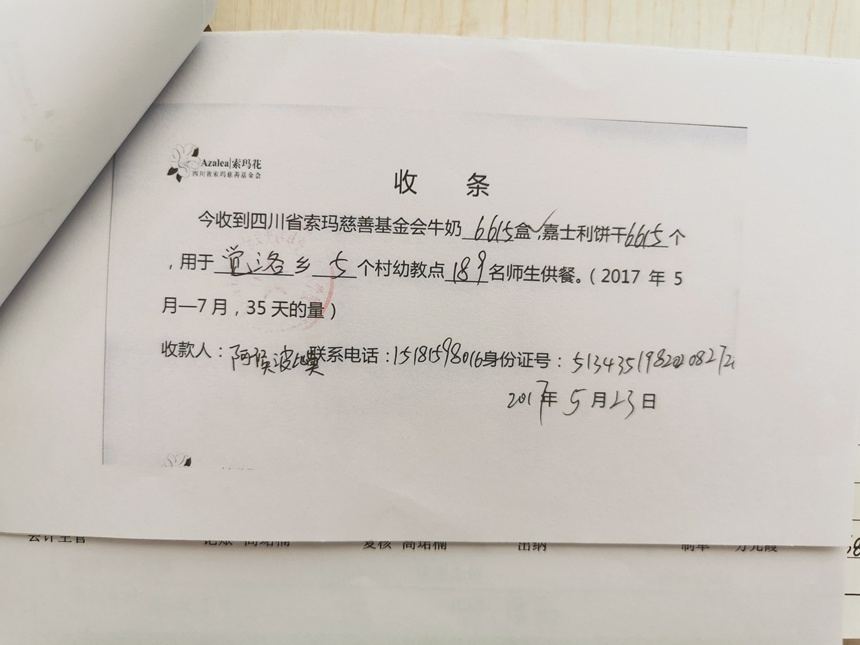 Azalea|索玛花
四川省索玛慈善基金会
收 条
今收到四川省索玛慈善基金会牛奶 6615 盒,嘉士利饼干 6615 个
,用于 觉洛乡 5 个村幼教点 189 名师生供餐。(2017 年 5
月—7 月,35 天的量)
收款人: 阿侯波 联系电话:15181598016 身份证号:
2017年 5 月 23 日
会计主管 记账 复核 出纳 制单